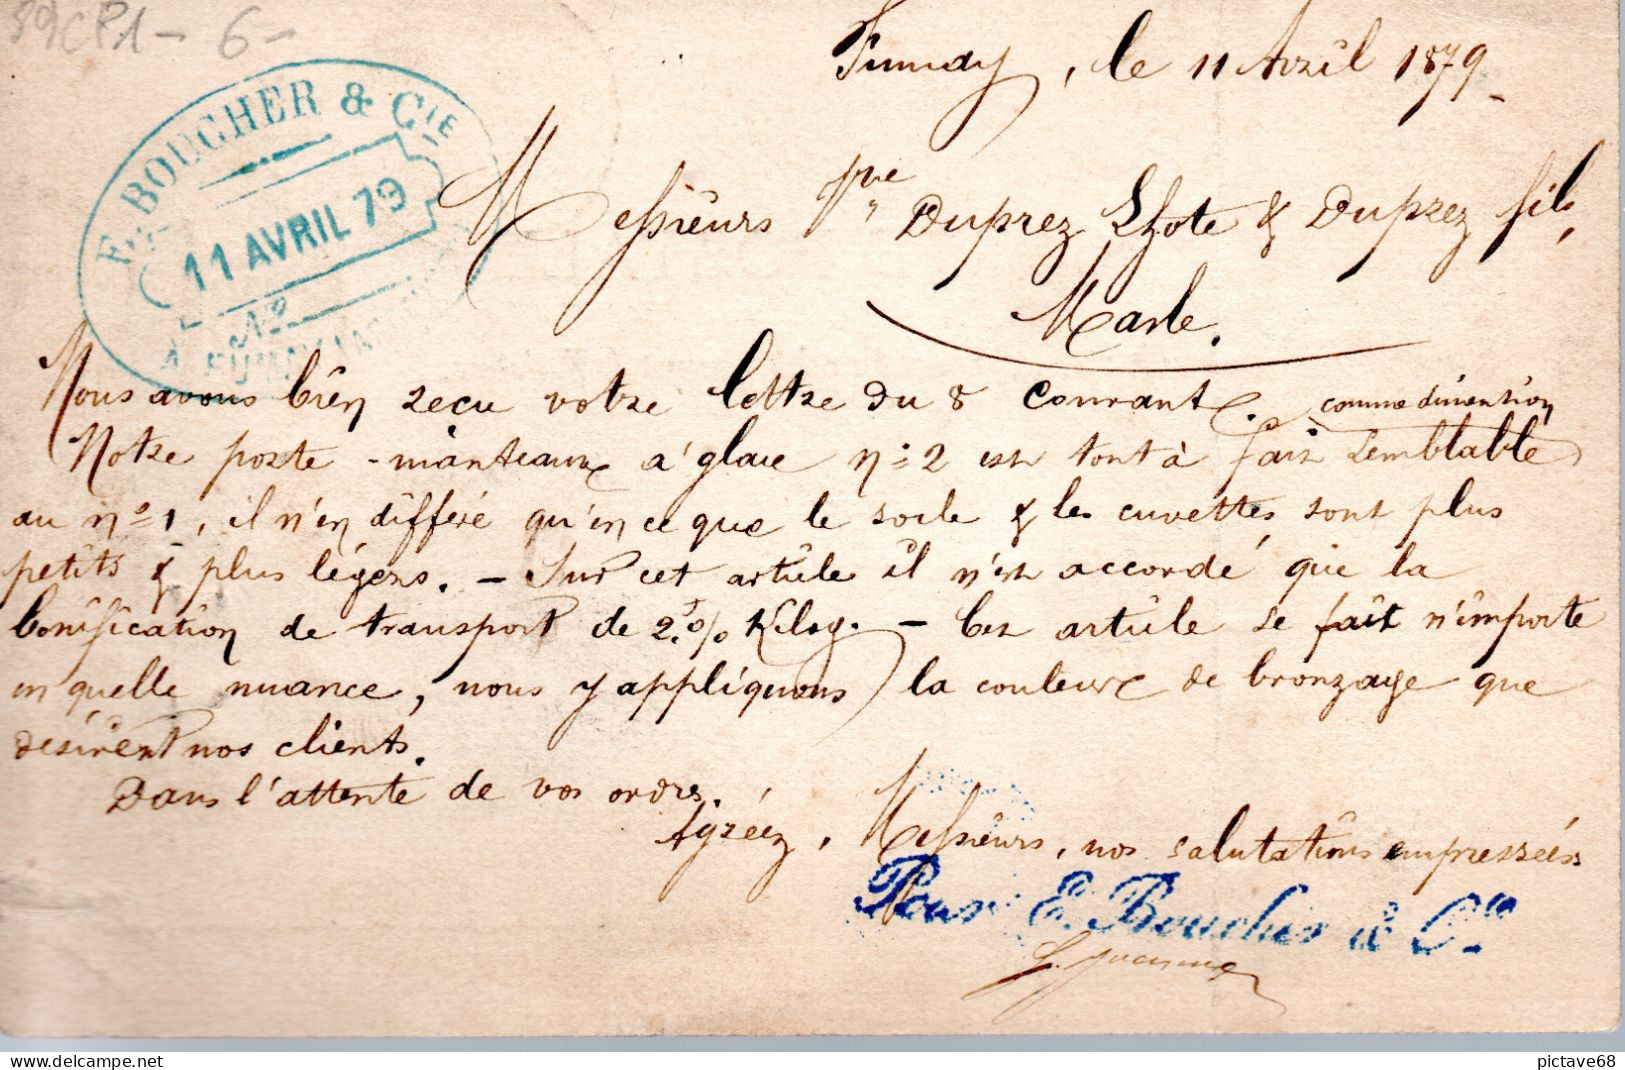 89CP1 - 6 -
E. BOUCHER & CIE
11 AVRIL 79
No
A FUMAY
Fumay, le 11 Avril 1879 -
Messieurs Vve Duprez Lhote & Duprez fils,
Marle.
Nous avons bien recu votre lettre du 8 Courant.
comme dimention
Notre porte-manteaux a' glace no 2 est tout à fait semblable
au no 1, il n'en différe qu'en ce que le socle & les cuvettes sont plus
petits & plus légers. - Sur cet article il n'est accordé que la
bonification de transport de 2 f % Kilog. - Cet article se fait n'importe
en quelle nuance, nous y appliquons la couleur de bronzage que
désirent nos clients.
Dans l'attente de vos ordres.
Agréez, Messieurs, nos salutations empressées
Pour E. Boucher & Cie
pictave68